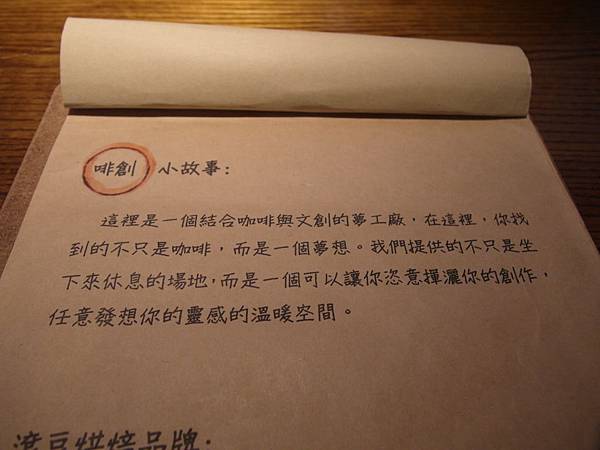 啡創 小故事：
這裡是一個結合咖啡與文創的夢工廠，在這裡，你找
到的不只是咖啡，而是一個夢想。我們提供的不只是坐
下來休息的場地，而是一個可以讓你恣意揮灑你的創作，
任意發想你的靈感的溫暖空間。
豆烘焙品牌：